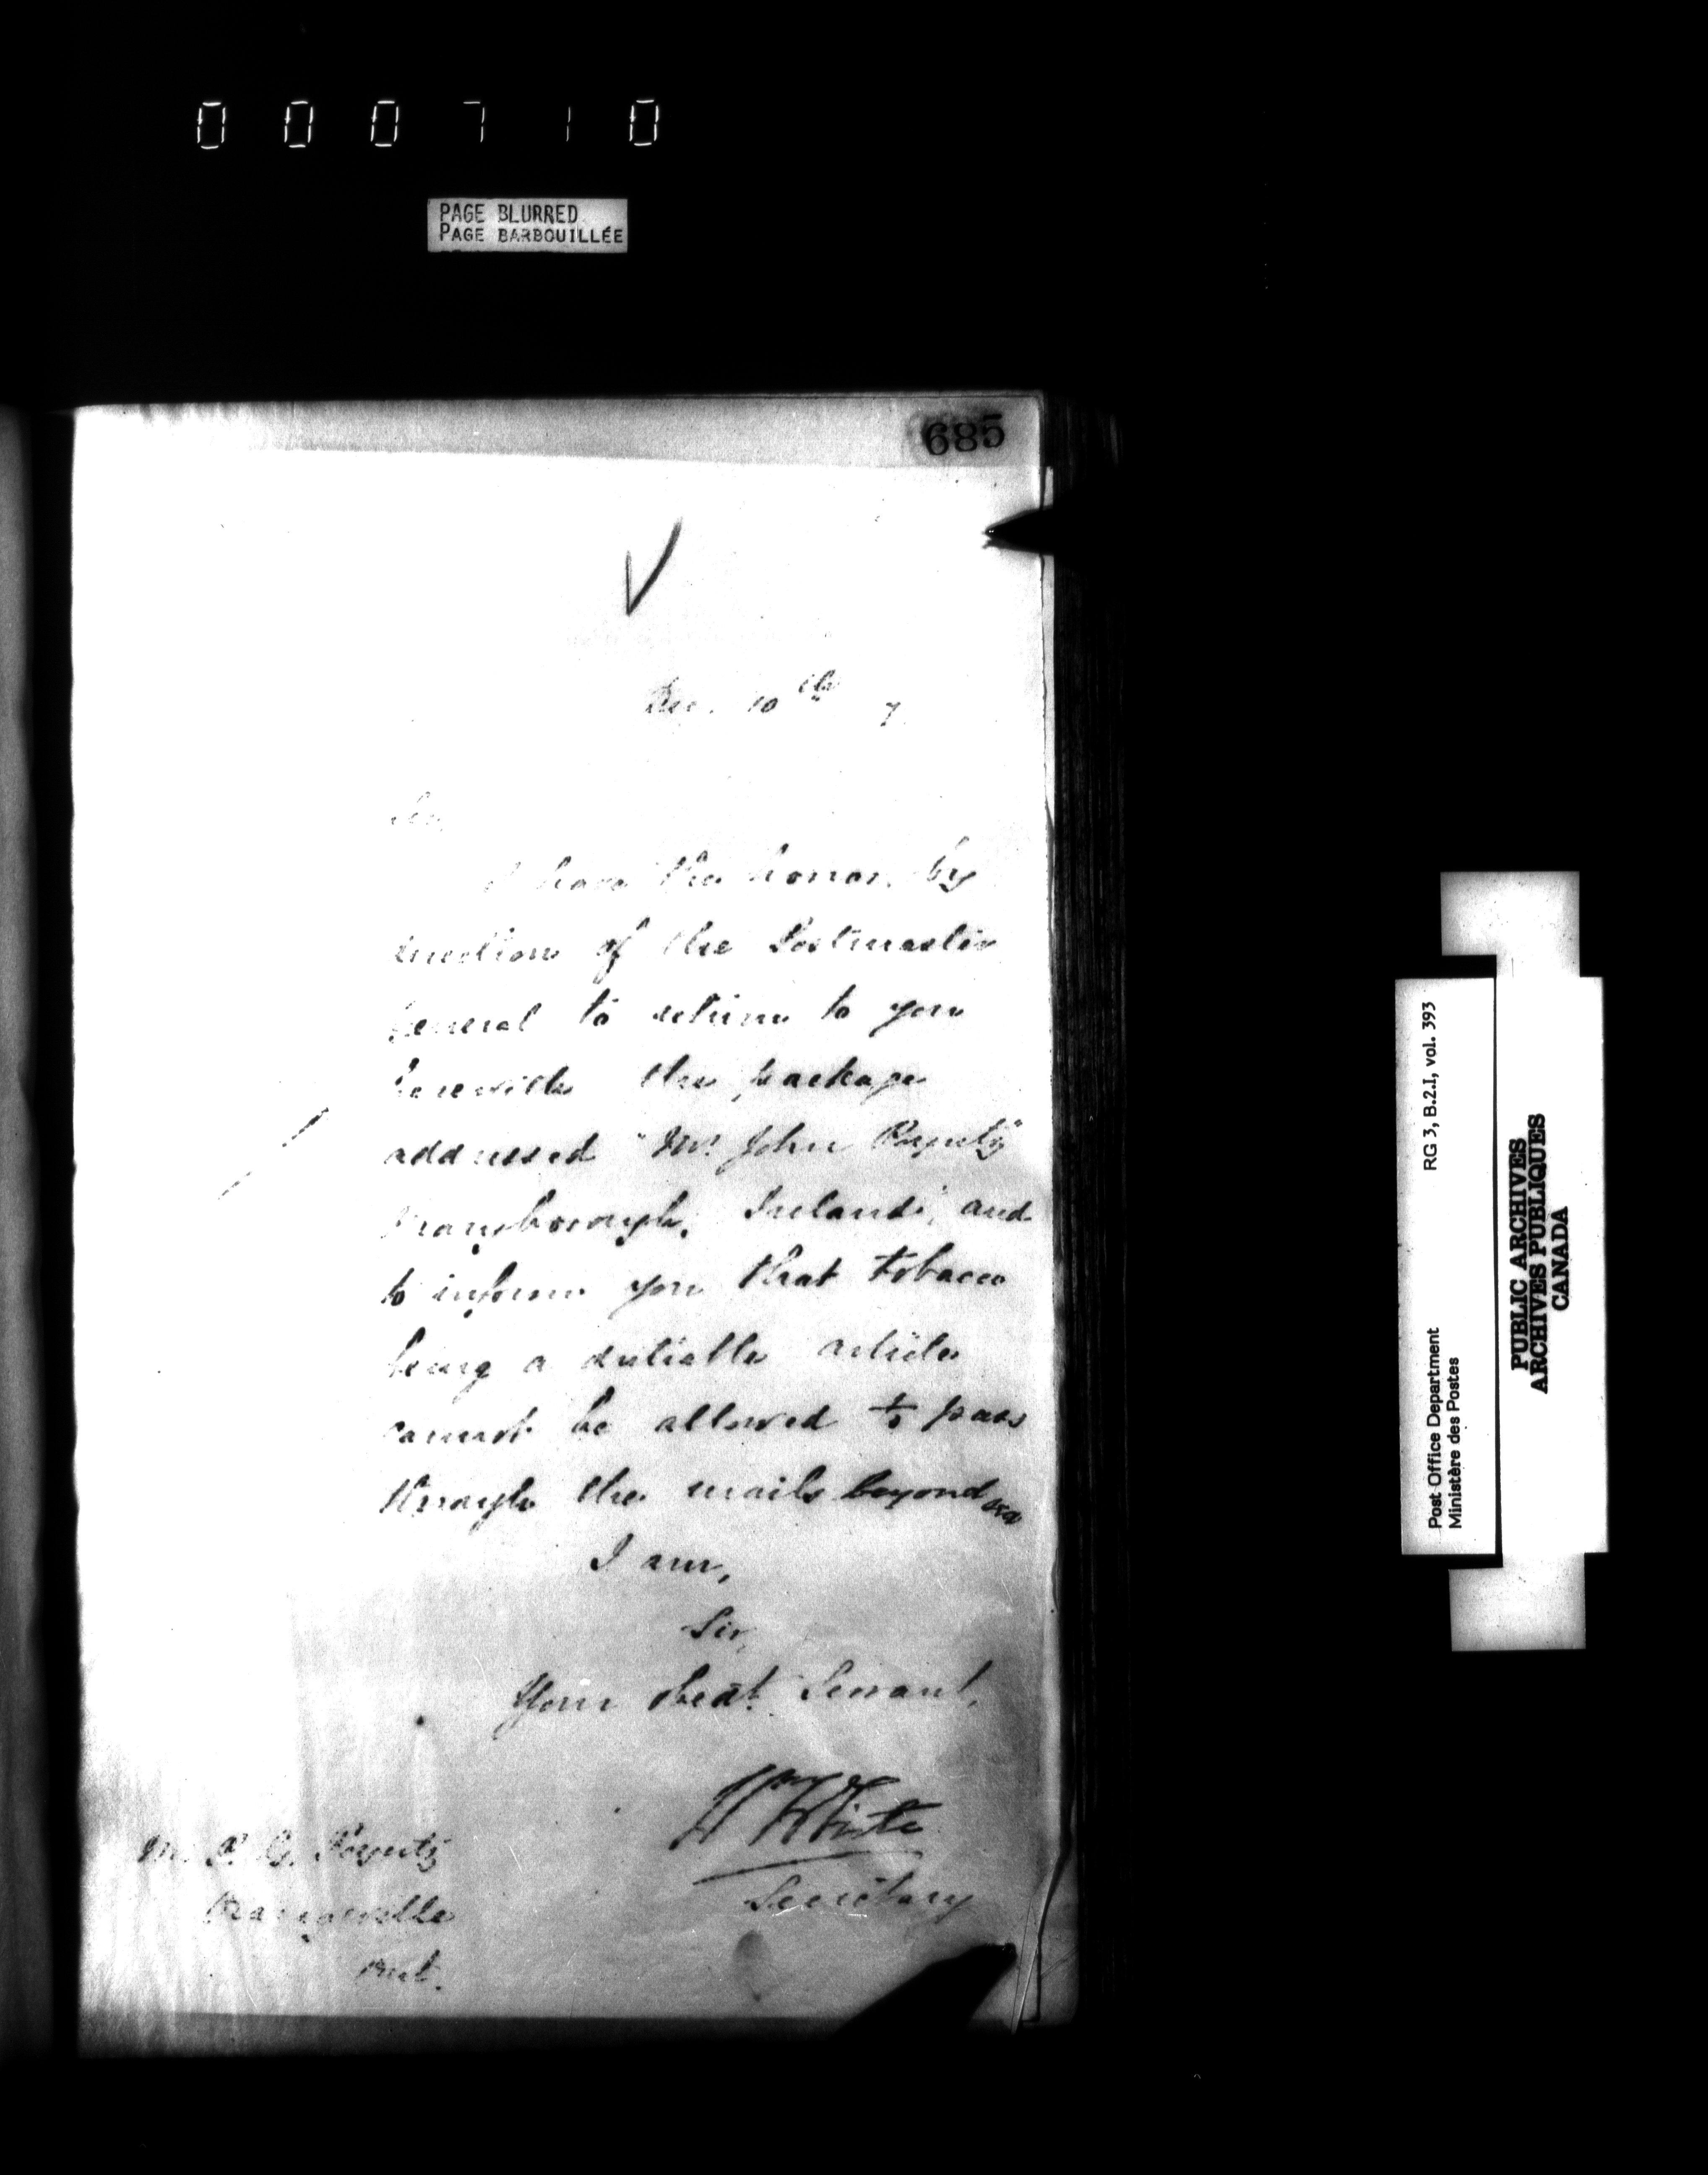 000710
PAGE BLURRED
PAGE BARBOUILLÉE
685
Dec. 10th 7
Sir,
I have the honor, by
direction of the Postmaster
General to return to you
herewith the package
addressed "Mr. John
Ireland", and
to inform you that tobacco
being a dutiable article
cannot be allowed to pass
through the mails beyond sea
I am,
Sir,
Your obedt. Servant,
Wm White
Secretary
Mr. P. G.
Orangeville
Ont.
RG 3, B.2.I, vol. 393
Post Office Department
Ministère des Postes
PUBLIC ARCHIVES
ARCHIVES PUBLIQUES
CANADA